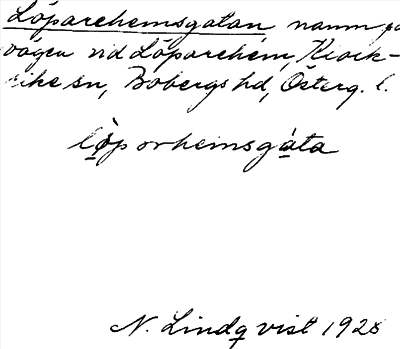 Löparehemsgatan namn på
vägen vid Löparehem, Krock-
rike sn, Bobergs hd, Österg. l.
löporhemsgáta
N. Lindqvist 1928